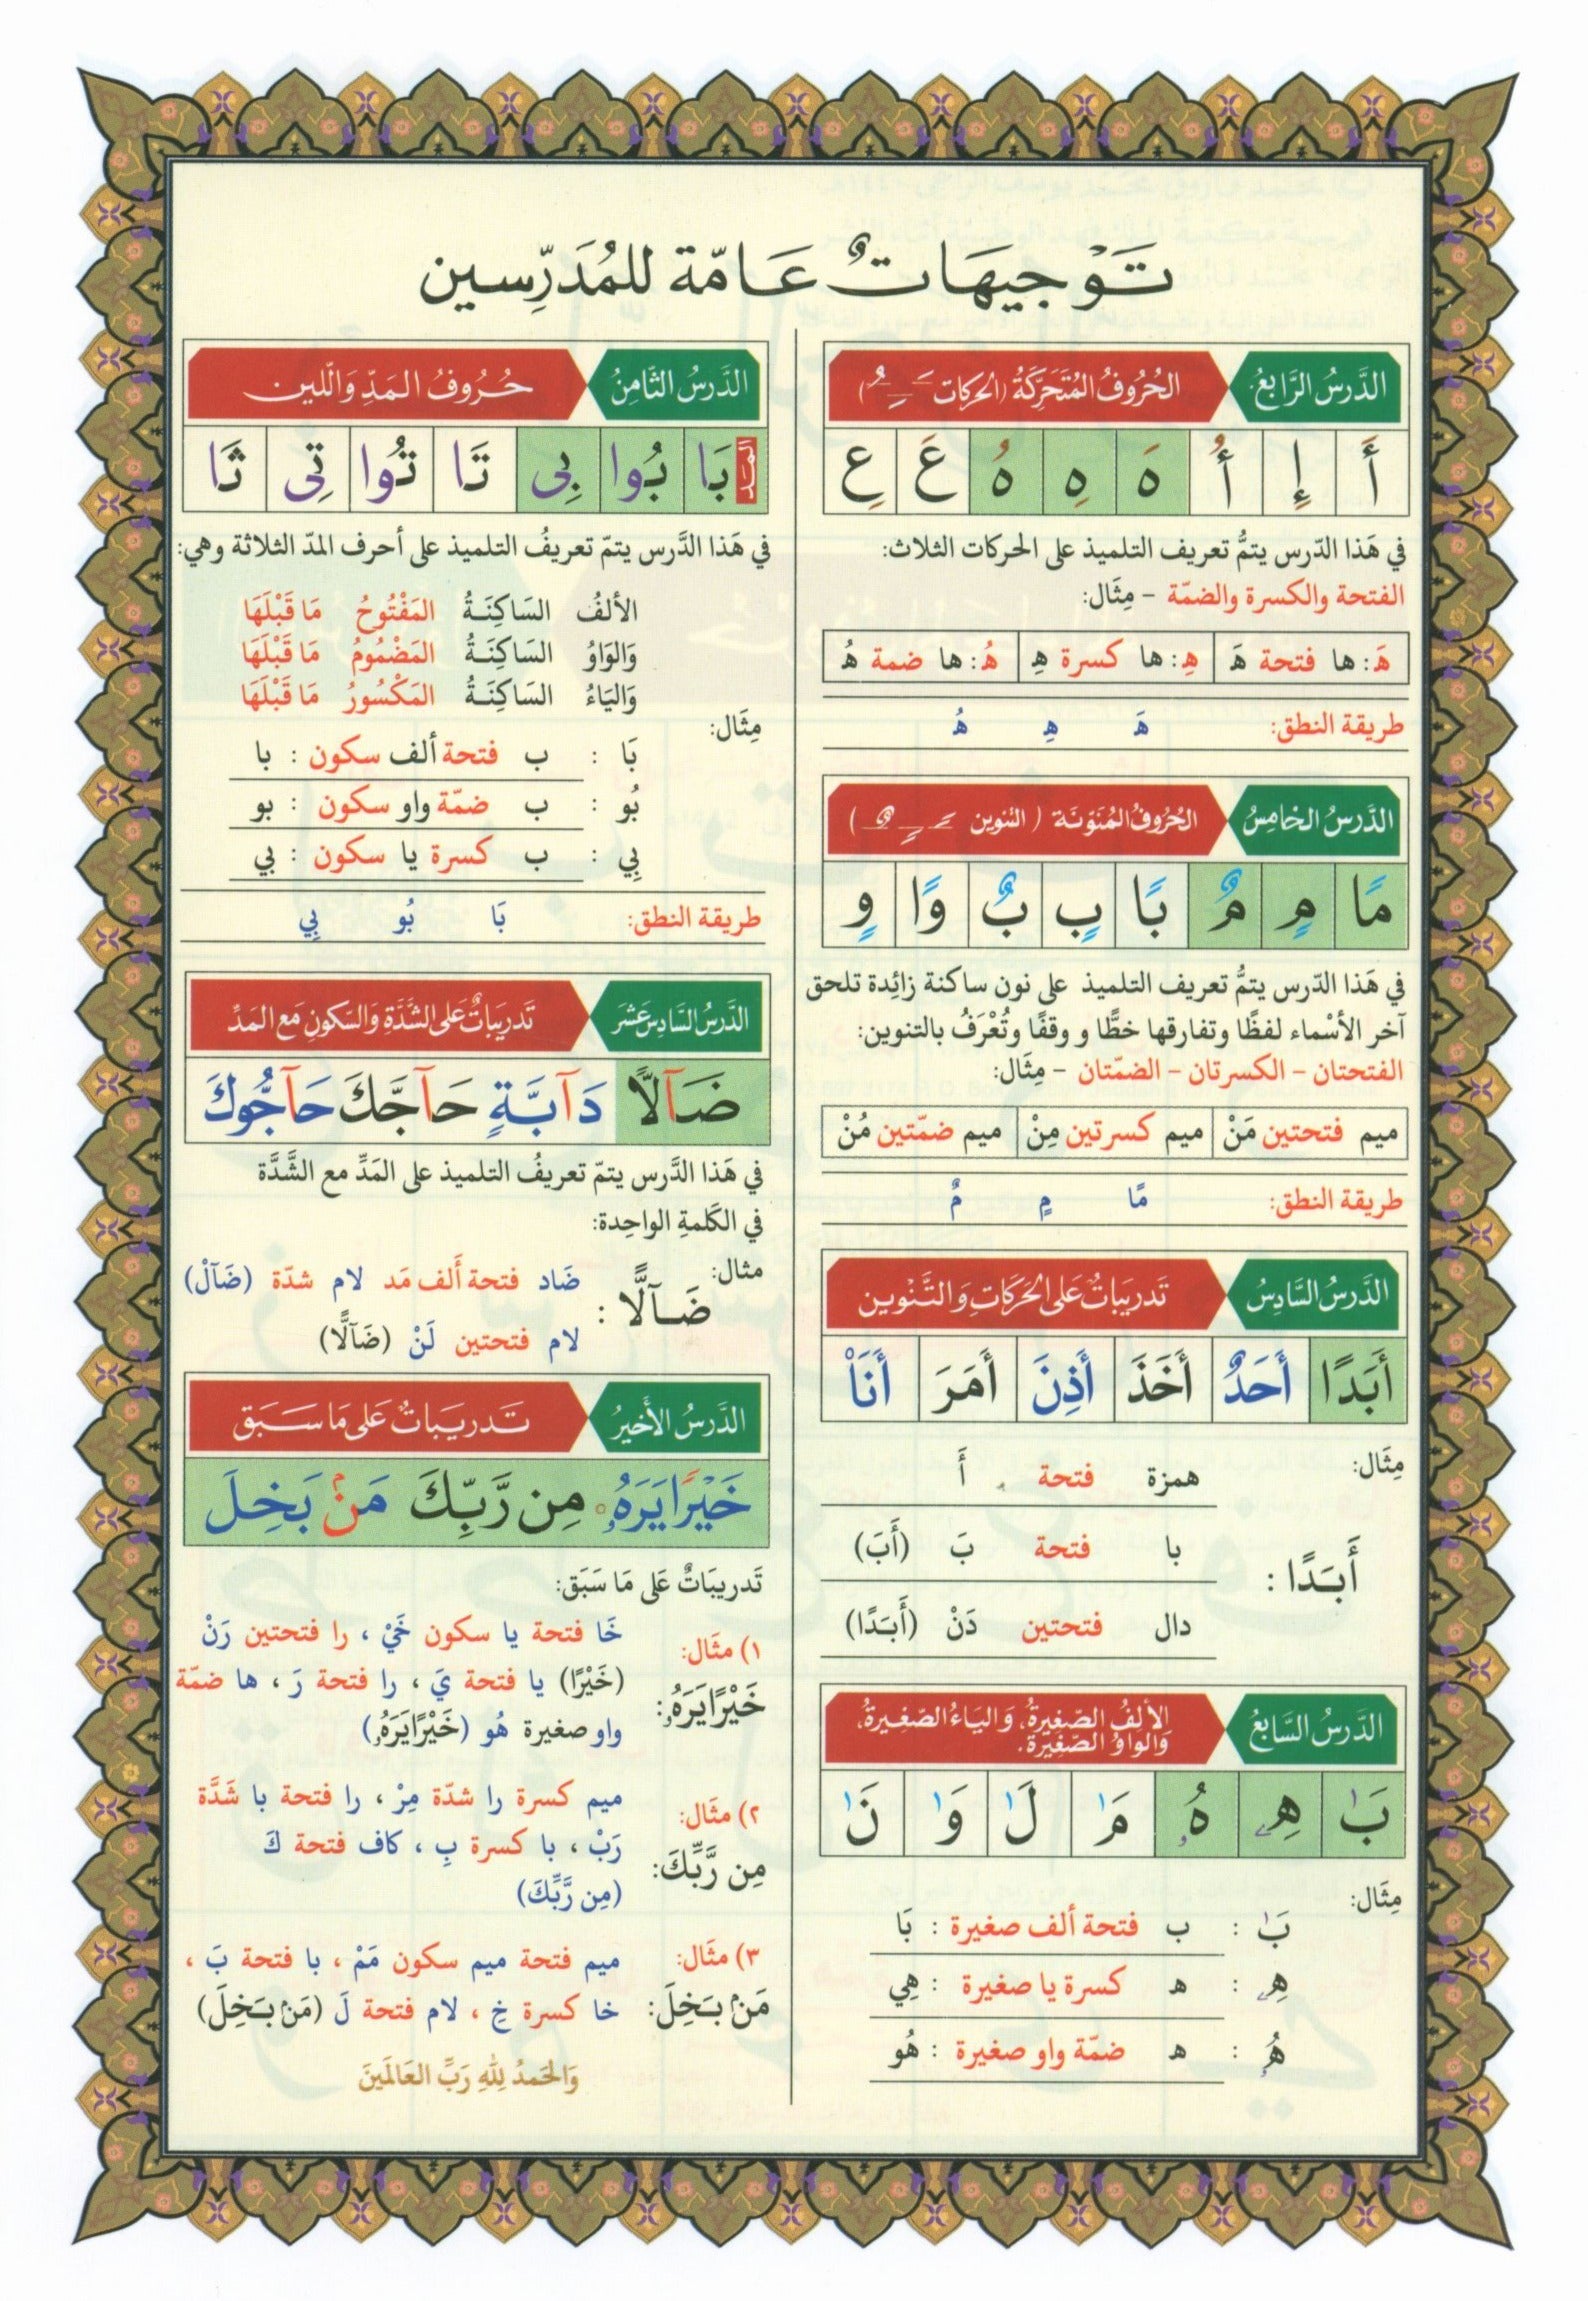 تَوْجِيهَاتٌ عَامّة للمُدَرِّسين
الدَّرسُ الرَّابعُ
الحُرُوفُ المُتَحَرِّكَةُ (الحركات ــَـِـُ)
أَ إِ أُ هَ هِ هُ عَ عِ
في هَذا الدّرس يتمُّ تعريف التلميذ على الحركات الثلاث:
الفتحة والكسرة والضمّة – مِثَال:
هَـ: ها فتحة هَـ
هِـ: ها كسرة هِـ
هُـ: ها ضمة هُـ
طريقة النطق: هَـ هِـ هُـ
الدَّرسُ الخامِسُ
الحُرُوفُ المُنَوّنَة (التنوين ــًـٍـٌ)
مًا مٍ مٌ بًا بٍ بٌ وًا وٍ
في هَذا الدّرس يتمُّ تعريف التلميذ على نون ساكنة زائِدة تلحق
آخر الأسْماء لفظًا وتفارقها خطًّا و وقفًا وتُعْرَفُ بالتنوين:
الفتحتان – الكسرتان – الضمّتان – مِثَال:
ميم فتحتين مَنْ
ميم كسرتين مِنْ
ميم ضمّتين مُنْ
طريقة النطق: مًا مٍ مٌ
الدَّرسُ السَّادِسُ
تَدرِيبَاتٌ عَلى الحَرَكَاتِ وَالتَّنْوين
أَبَدًا أَحَدٌ أَخَذَ أَذِنَ أَمَرَ أَنَا۠
مِثَال:
همزة فتحة أَ
أَبَدًا :
با فتحة بَ (أَبَ)
دال فتحتين دَنْ (أَبَدًا)
الدَّرسُ السَّابعُ
الألِفُ الصّغِيرةُ، وَاليَاءُ الصّغِيرةُ،
وَالواوُ الصّغِيرَةُ.
بَٰ هِۦ هُۥ مَٰ لَٰ وَٰ نَٰ
مِثَال:
بَٰ : ب فتحة ألف صغيرة : بَا
هِۦ : هـ كسرة يا صغيرة : هِي
هُۥ : هـ ضمّة واو صغيرة : هُو
الدَّرسُ الثَّامِنُ
حُرُوفُ المَدِّ وَاللّين
المَد
بَا بُوا بِى تَا تُوا تِى ثَا
في هَذا الدَّرس يتمّ تعريفُ التلميذ على أحرف المدّ الثلاثة وهي:
الألفُ السَاكِنَةُ المَفْتُوحُ مَا قَبْلَهَا
وَالوَاوُ السَاكِنَةُ المَضْمُومُ مَا قَبْلَهَا
وَاليَاءُ السَاكِنَةُ المَكْسُورُ مَا قَبْلَهَا
مِثَال:
بَا : ب فتحة ألف سكون : با
بُو : ب ضمّة واو سكون : بو
بِي : ب كسرة يا سكون : بي
طريقة النطق: بَا بُو بِي
الدَّرسُ السَّادِسَ عَشَرَ
تَدرِيبَاتٌ عَلى الشَّدَّةِ وَالسّكونِ مَع المَدِّ
ضَآلًّا دَآبَّةٍ حَآجَّكَ حَآجُّوكَ
في هَذا الدَّرس يتمّ تعريفُ التلميذ على المَدِّ مع الشَّدَّة
في الكَلمةِ الواحِدة:
مثال:
ضَآلًّا :
ضَاد فتحة ألف مَد لام شدّة (ضَآلْ)
لام فتحتين لَنْ (ضَآلًّا)
الدَّرسُ الأَخيرُ
تَدرِيبَاتٌ عَلى مَا سَبَق
خَيْرًا يَرَهُۥ مِن رَّبِّكَ مَنۢ بَخِلَ
تَدرِيبَاتٌ عَلى مَا سَبَق:
١) مثَال:
خَيْرًا يَرَهُۥ:
خَا فتحة يا سكون خَيْ ، را فتحتين رَنْ
(خَيْرًا) يا فتحة يَ ، را فتحة رَ ، ها ضمّة
واو صغيرة هُو (خَيْرًا يَرَهُۥ)
٢) مثَال:
مِن رَّبِّكَ:
ميم كسرة را شدّة مِرْ ، را فتحة با شَدَّة
رَبْ ، با كسرة بِ ، كاف فتحة كَ
(مِن رَّبِّكَ)
٣) مثَال:
مَنۢ بَخِلَ:
ميم فتحة ميم سكون مَمْ ، با فتحة بَ ،
خا كسرة خِ ، لام فتحة لَ (مَنۢ بَخِلَ)
وَالحَمدُ لِلهِ رَبِّ العَالَمَينَ